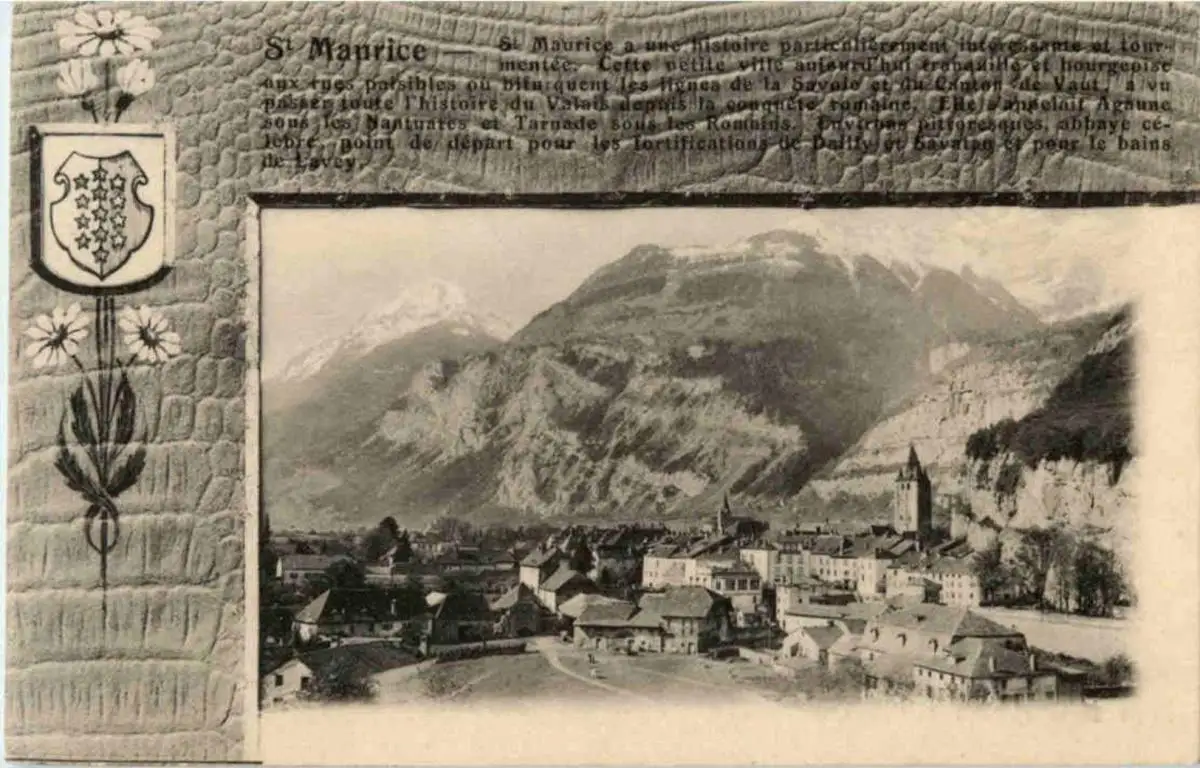 St Maurice
St Maurice a une histoire particulièrement intéressante et tour-
mentée. Cette petite ville aujourd'hui tranquille et bourgeoise
aux rues paisibles où bifurquent les lignes de la Savoie et du Canton de Vaut, a vu
passer toute l'histoire du Valais depuis la conquête romaine. Elle s'appelait Agaune
sous les Nantuates et Tarnade sous les Romains. Environs pittoresques, abbaye cé-
lèbre, point de départ pour les fortifications de Dailly et Savatan et pour le bains
de Lavey.